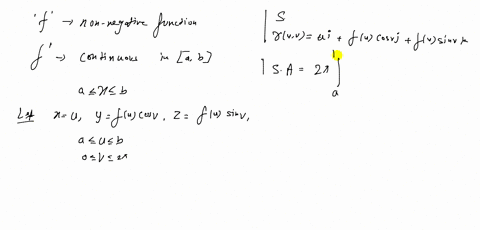 'f' → non-negative function
f' → continuous in [a, b]
a ≤ x ≤ b
Let x = u, y = f(u) cosv, z = f(u) sinv,
a ≤ u ≤ b
0 ≤ v ≤ 2π
S
r(u,v) = ui + f(u) cosvj + f(u) sinv k
S.A = 2π ∫
b
a